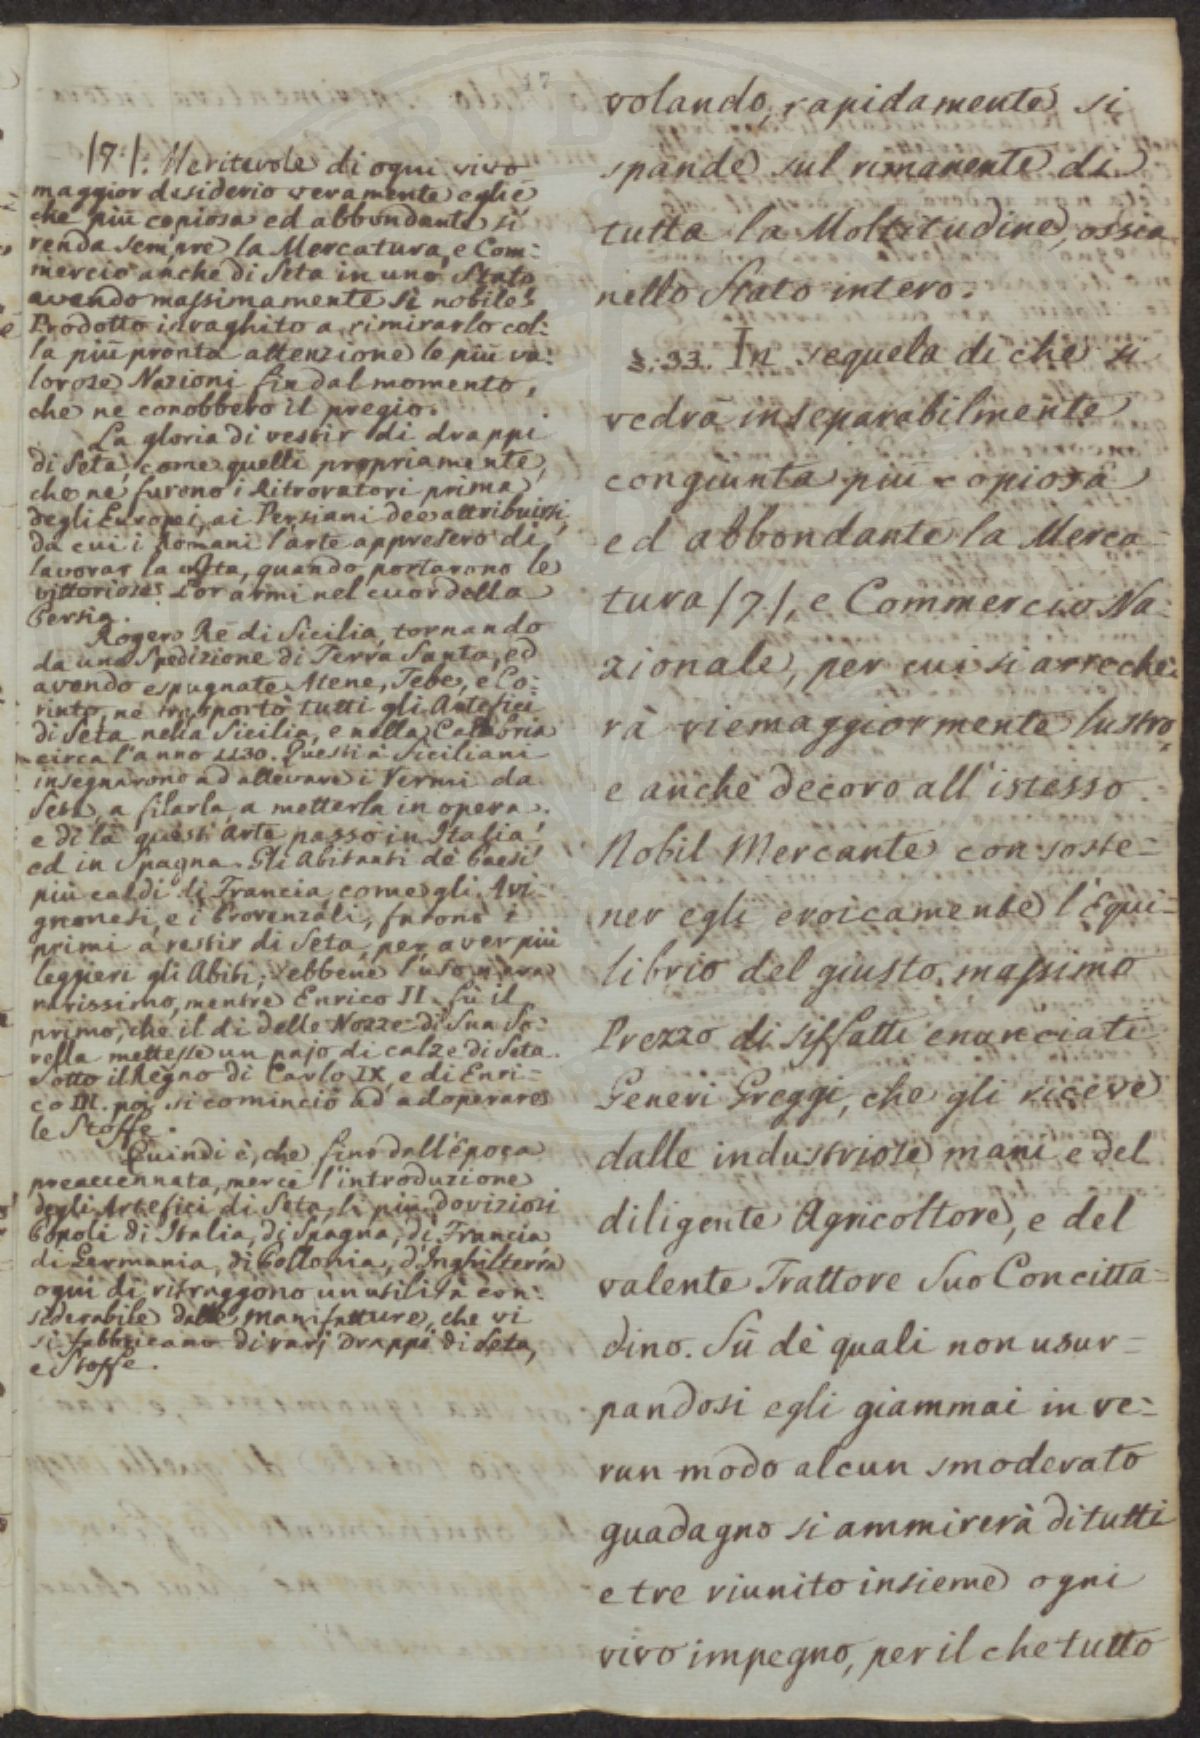 17
/7/. Meritevole di ogni vivo
maggior desiderio veramente egli è
che più copiosa ed abbondante si
renda sempre la Mercatura, e Com:
mercio anche di Seta in uno Stato
avendo massimamente sì nobile
Prodotto invaghito a rimirarlo col:
la più pronta attenzione le più va:
lorose Nazioni fin dal momento,
che ne conobbero il pregio.
La gloria di vestir di drappi
di Seta, come quelli propriamente,
che ne furono i Ritrovatori prima
degli Europei, ai Persiani dee attribuirsi,
da cui i Romani l'arte appresero di
lavorar la Seta, quando portarono le
vittoriose Lor armi nel cuor della
Persia.
Rogero Rè di Sicilia, tornando
da una Spedizione di Terra Santa, ed
avendo espugnate Atene, Tebe, e Co:
rinto, ne trasportò tutti gli Artefici
di Seta nella Sicilia, e nella Calabria
circa l'anno 1130. Questi à Siciliani
insegnarono ad allevare i Vermi da
Seta, a filarla, a metterla in opera,
e di là quest'Arte passò in Italia,
ed in Spagna. Gli Abitanti de' Paesi
più caldi di Francia, come gli Avi:
gnonesi, e i Provenzali, furono i
primi a vestir di Seta, per aver più
leggieri gli Abiti; sebbene l'uso n'era
rarissimo, mentre Enrico II. fù il
primo, che il di delle Nozze di Sua So:
rella mettesse un pajo di calze di Seta.
Sotto il Regno di Carlo IX, e di Enri-
co III. poi si cominciò ad adoperare
le Stoffe.
Quindi è, che fino dall'época
preaccennata, mercè l'introduzione
degli Artefici di Seta, li più doviziosi
Popoli di Italia, di Spagna, di Francia
di Germania, di Pollonia, d'Inghilterra
ogni di ritraggono un utilità con:
siderabile dalle Manifatture, che vi
si fabbricano di varj Drappi di Seta,
e Stoffe.
volando, rapidamente si
spande sul rimanente di
tutta la Moltitudine, ossia
nello Stato intero.
§. 33. In sequela di che si
vedrà inseparabilmente
congiunta più copiosa
ed abbondante la Merca-
tura /7/, e Commercio Na:
zionale, per cui si arreche:
rà viemaggiormente lustro,
e anche decoro all'istesso
Nobil Mercante con soste-
ner egli eroicamente l'Equi-
librio del giusto, massimo
Prezzo di siffatti enunciati
Generi Greggi, che gli riceve
dalle industriose mani e del
diligente Agricoltore, e del
valente Trattore Suo Concitta-
dino. Sù dè quali non usur-
pandosi egli giammai in ve-
run modo alcun smoderato
guadagno si ammirerà di tutti
e tre riunito insieme ogni
vivo impegno, per il che tutto